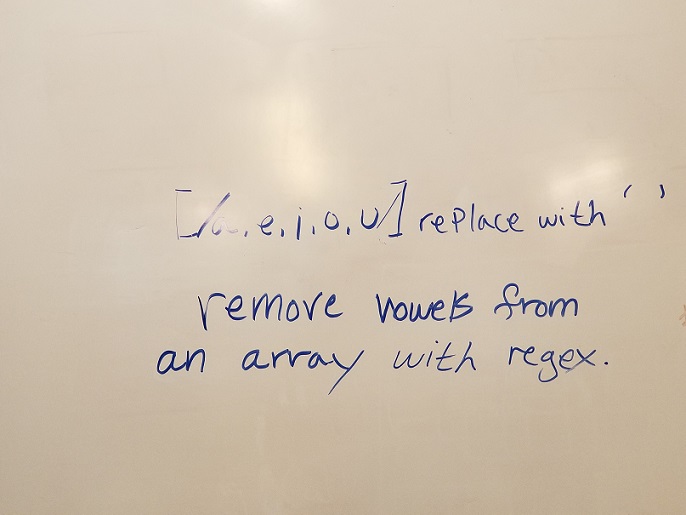 [/a, e, i, o, u/] replace with ' '
remove vowels from
an array with regex.